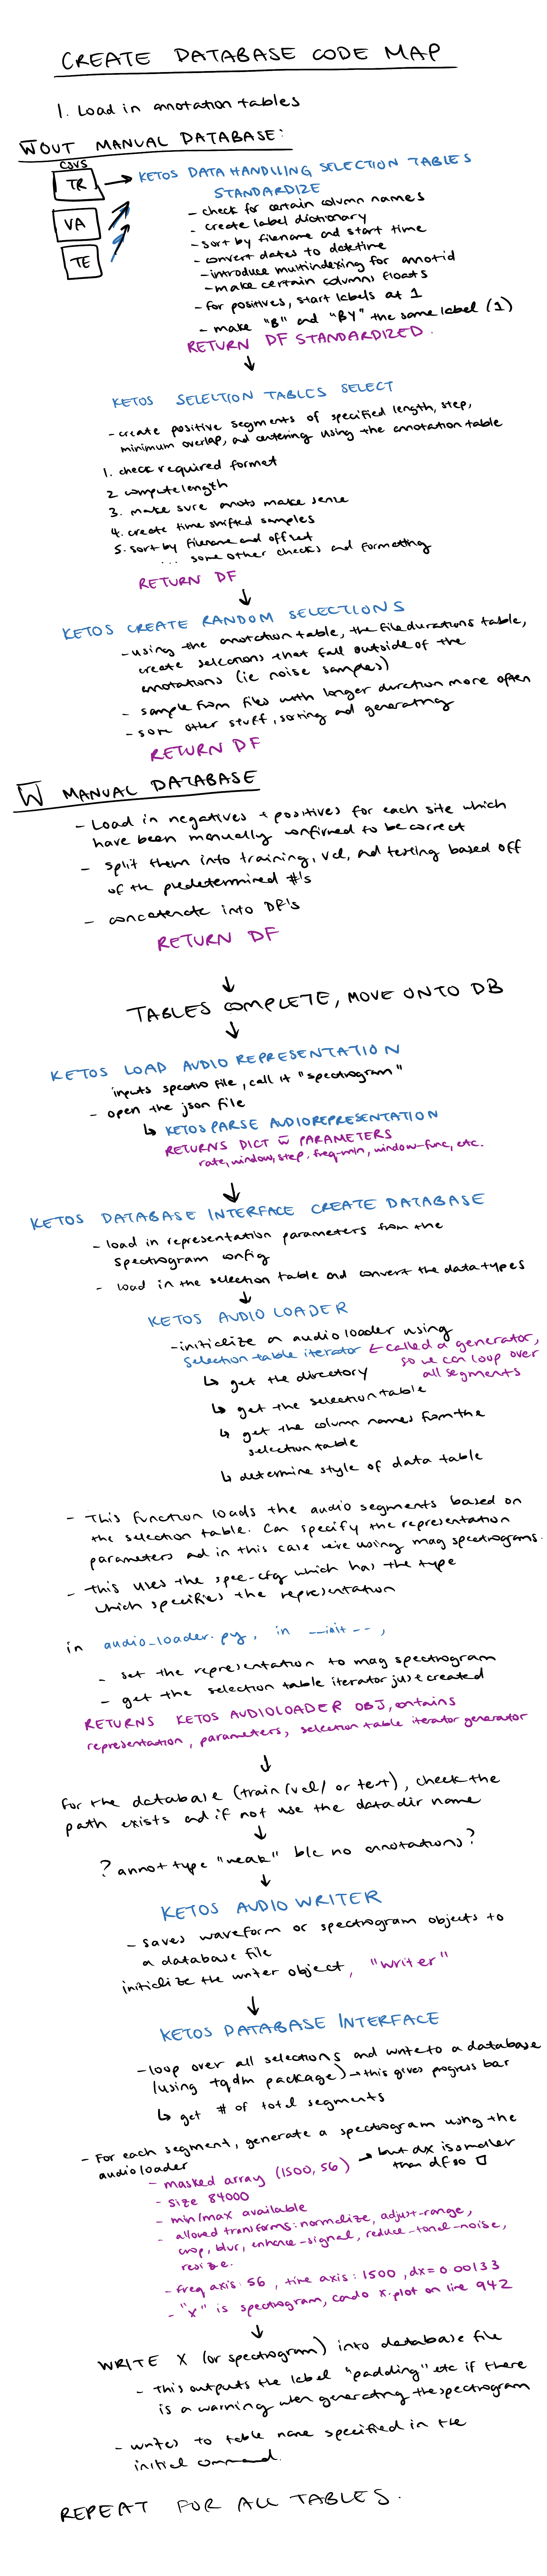 CREATE DATABASE CODE MAP
1. Load in annotation tables
W̄OUT MANUAL DATABASE:
CSVS
TR
VA
TE
→ KETOS DATA HANDLING SELECTION TABLES
STANDARDIZE
- check for certain column names
- create label dictionary
- sort by filename and start time
- convert dates to datetime
- introduce multindexing for annotid
- make certain columns floats
- for positives, start labels at 1
- make "B" and "BY" the same label (1)
RETURN DF STANDARDIZED.
↓
KETOS SELECTION TABLES SELECT
- create positive segments of specified length, step,
minimum overlap, and centering using the annotation table
1. check required format
2 compute length
3. make sure annots make sense
4. create time shifted samples
5. sort by filename and offset
... some other checks and formatting
RETURN DF
↓
KETOS CREATE RANDOM SELECTIONS
- using the annotation table, the file durations table,
create selections that fall outside of the
annotations (ie noise samples)
- sample from files with longer duration more often
- some other stuff, sorting and generating
RETURN DF
W̄ MANUAL DATABASE
- Load in negatives + positives for each site which
have been manually confirmed to be correct
- split them into training, val, and testing based off
of the predetermined #'s
- concatenate into DF's
RETURN DF
↓
TABLES COMPLETE, MOVE ONTO DB
↓
KETOS LOAD AUDIO REPRESENTATION
inputs spectro file, call it "spectrogram"
- open the json file
↳ KETOS PARSE AUDIOREPRESENTATION
RETURNS DICT W̄ PARAMETERS
rate, window, step, freq-min, window-func, etc.
↓
KETOS DATABASE INTERFACE CREATE DATABASE
- load in representation parameters from the
spectrogram config
- load in the selection table and convert the data types
↓
KETOS AUDIO LOADER
- initialize an audio loader using
selection table iterator ← called a generator,
so we can loop over
all segments
↳ get the directory
↳ get the selection table
↳ get the column names from the
selection table
↳ determine style of data table
- This function loads the audio segments based on
the selection table. Can specify the representation
parameters and in this case we're using mag spectrograms.
- this uses the spec-cfg which has the type
which specifies the representation
in audio_loader.py, in __init__,
- set the representation to mag spectrogram
- get the selection table iterator just created
RETURNS KETOS AUDIOLOADER OBJ, contains
representation, parameters, selection table iterator generator
↓
for the database (train/val/ or test), check the
path exists and if not use the data dir name
↓
? annot type "weak" b/c no annotations?
↓
KETOS AUDIO WRITER
- saves waveform or spectrogram objects to
a database file
initialize the writer object, "writer"
↓
KETOS DATABASE INTERFACE
- loop over all selections and write to a database
(using tqdm package) → this gives progress bar
↳ get # of total segments
- For each segment, generate a spectrogram using the
audio loader
- masked array (1500, 56) → but dx is smaller
than df so
- size 84000
- min/max available
- allowed transforms: normalize, adjust-range,
crop, blur, enhance-signal, reduce-tonal-noise,
resize.
- freq axis: 56, time axis: 1500, dx = 0.00133
- "x" is spectrogram, can do x.plot on line 942
↓
WRITE X (or spectrogram) into database file
- This outputs the label "padding" etc if there
is a warning when generating the spectrogram
- writes to table name specified in the
initial command.
REPEAT FOR ALL TABLES.